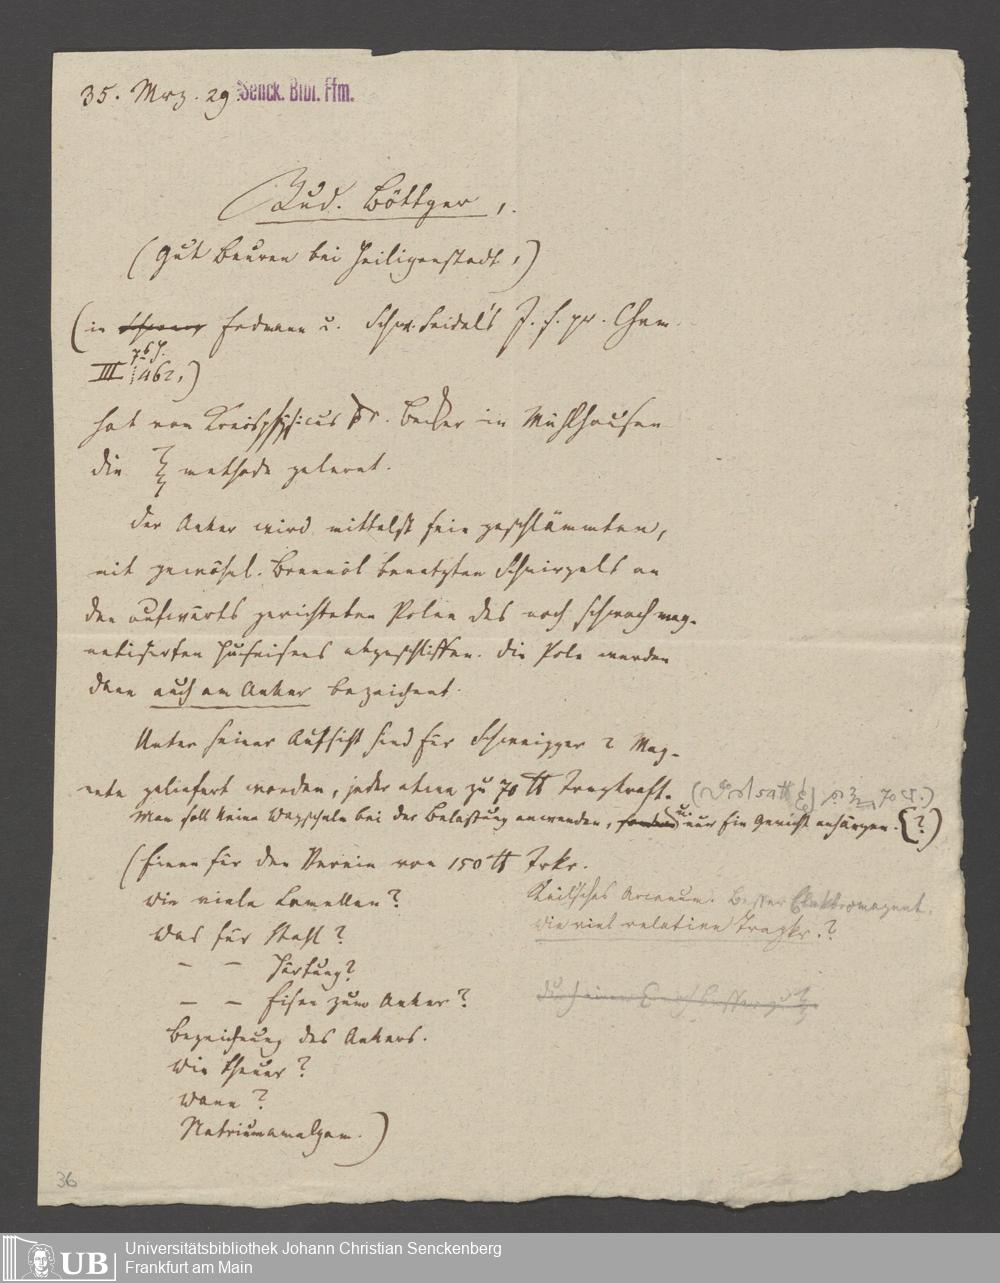 35. Mrz. 29. Senck. Bibl. Ffm.
Rud. Böttger,
(Gut Beuren bei Heiligenstadt,)
(in Erdmann u. Schw. Seidel's J. f. pr. Chem.
III 462,)
hat von Kreisphysicus Dr. Becker in Mühlhausen
die methode gelernt.
Der Anker wird mittelst fein geschlämmten,
mit gewöhnl. Brennöl benetzten Schmirgels an
den aufwärts gerichteten Polen des noch schwach mag-
netisirten Hufeisens abgeschliffen. Die Pole werden
dann auch am Anker bezeichnet.
Unter seiner Aufsicht sind für Schweigger 2 Mag-
nete geliefert worden, jeder etwa zu 70 ℔ Tragkraft.
Man soll keine Wagschale bei der Belastung anwenden, sondern u. nur ein Gewicht anhängen. (?)
(Einen für den Verein von 150 ℔ Trkr.
Wie viele Lamellen?
Was für Stahl?
— — Härtung?
— — Eisen zum Anker?
Bezeichnung des Ankers.
Wie theuer?
Wann?
Natriumamalgam.)
Keil'sches Arcanum. Besser Elektromagnet.
Wie viel relative Tragkr.?
36
UB Universitätsbibliothek Johann Christian Senckenberg
Frankfurt am Main